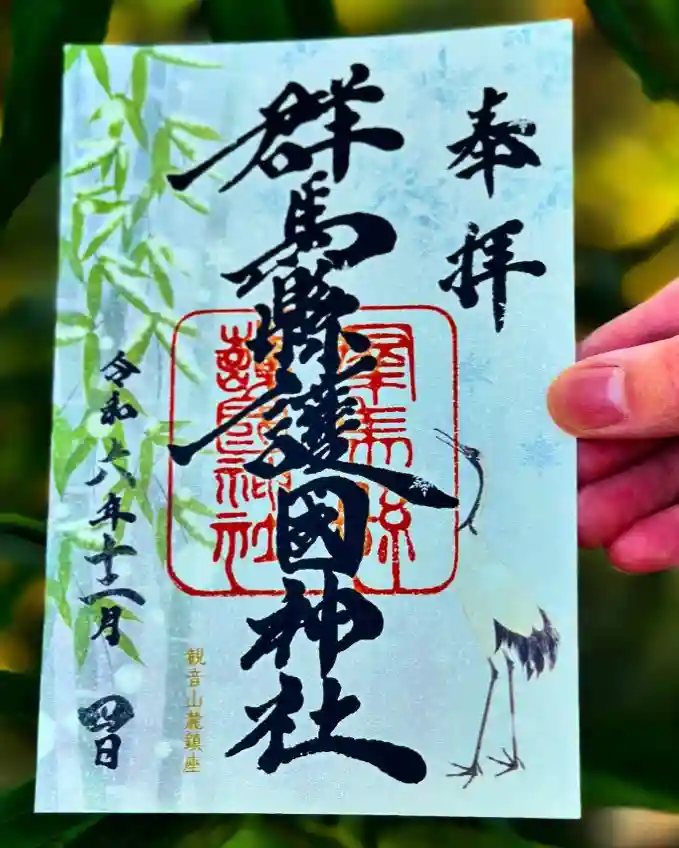 奉拝
群馬縣護國神社
群馬縣
護國神社
観音山麓鎮座
令和六年十二月四日